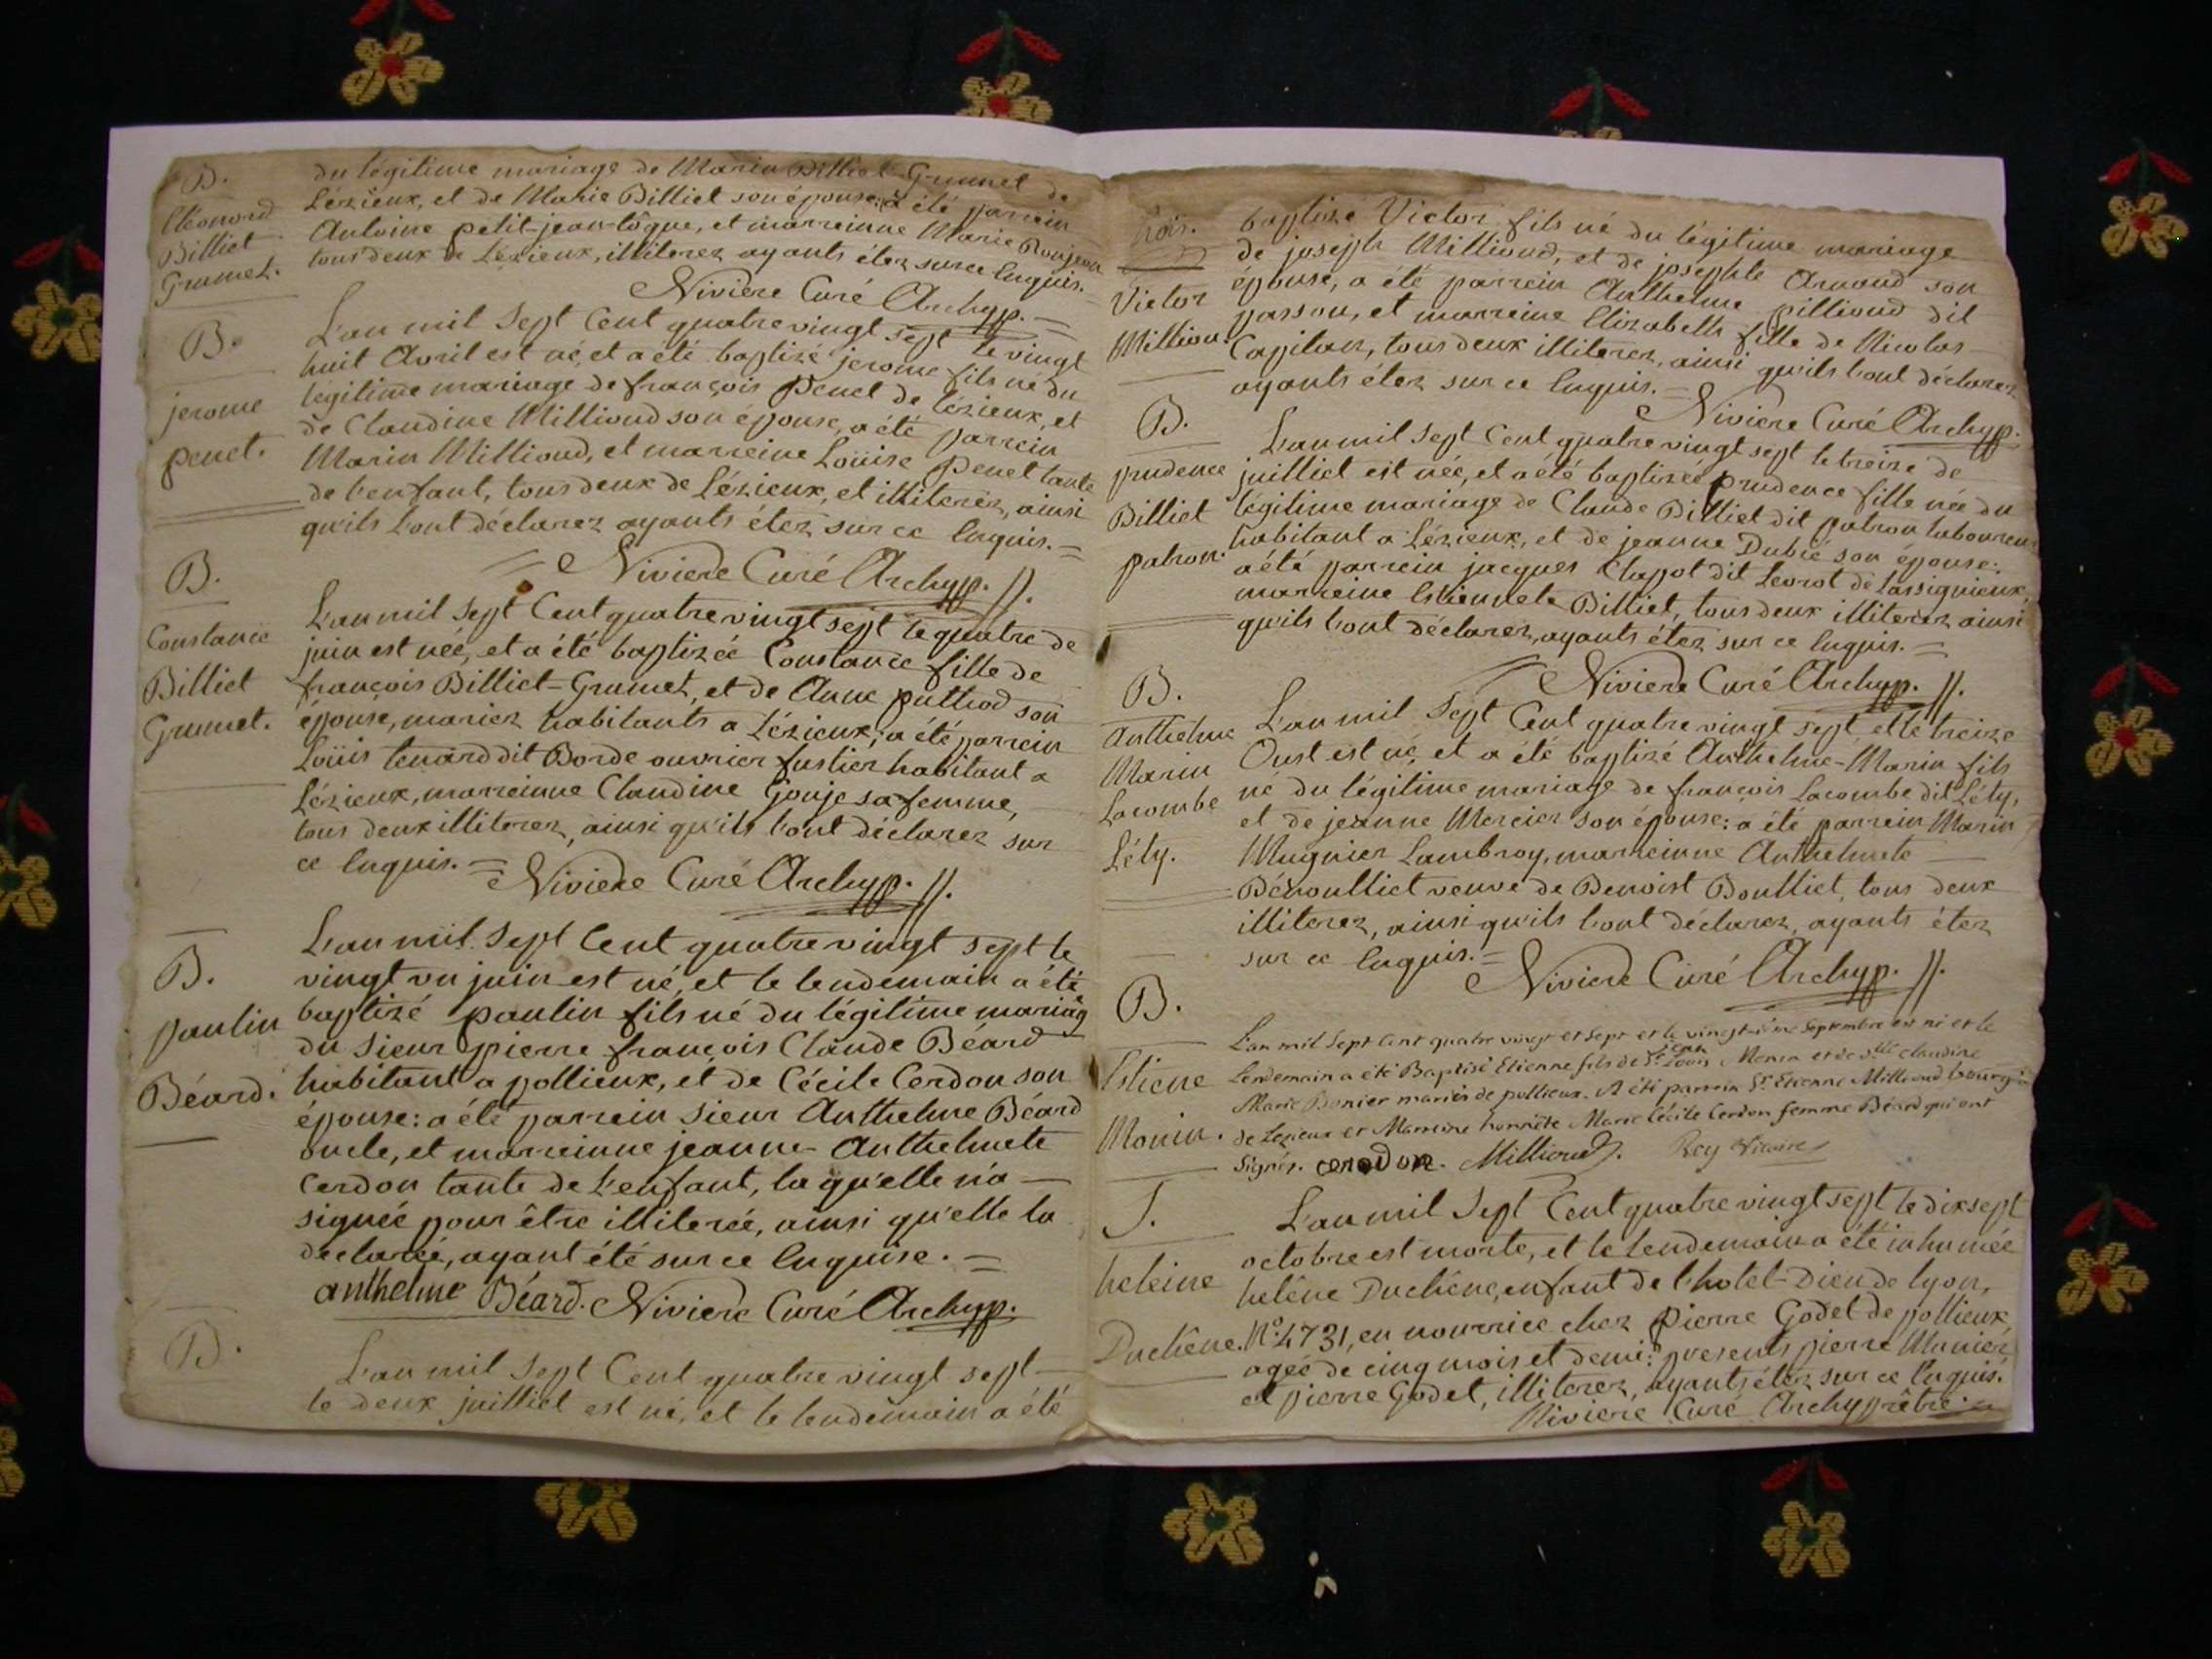 B.
Cléonord
Billiet
Grumet.
du légitime mariage de Marin Billiet Grumet de
Lézieux, et de Marie Billiet son épouse: a été parrein
Antoine petit-jean-tôgue, et marreinne Marie
tous deux de Lézieux, illiterez ayants étez sur ce Enquis.
Niviere Curé Archyp.
B.
jerome
penet.
L'an mil Sept Cent quatre vingt sept le vingt
huit Avril est né, et a été baptizé jerome fils né du
légitime mariage de françois Penet de lézieux, et
de Claudine Milliond son épouse, a été parrein
Marin Milliond, et marreine Loüise Penet tante
de l'enfant, tous deux de Lézieux, et illiterez, ainsi
qu'ils l'ont déclarez ayants étez sur ce Enquis. =
Niviere Curé Archyp. //.
B.
Constance
Billiet
Grumet.
L'an mil Sept Cent quatre vingt sept le quatre de
juin est née, et a été baptizée Constance fille de
françois Billiet-Grumet, et de Anne puthod son
épouse, mariez habitants a Lézieux; a été parrein
Loüis tenard dit Borde ouvrier fustier habitant a
Lézieux, marreinne Claudine Gouje sa femme,
tous deux illiterez, ainsi qu'ils l'ont déclarez sur
ce Enquis. = Niviere Curé Archyp. //.
B.
paulin
Béard.
L'an mil Sept Cent quatre vingt sept le
vingt un juin est né, et le lendemain a été
baptizé paulin fils né du légitime mariag
du Sieur pierre françois Claude Béard
habitant a pollieux, et de Cécile Cerdon son
épouse: a été parrein Sieur Anthelme Béard
oncle, et marreinne jeanne-Anthelmete
Cerdon tante de l'enfant, la qu'elle n'a
signée pour être illiterée, ainsi qu'elle la
declarée, ayant été sur ce Enquise. =
anthelme Béard. Niviere Curé Archyp.
B.
L'an mil Sept Cent quatre vingt sept
le deux juilliet est né, et le lendemain a été
trois.
Victor
Milliou
baptizé Victor fils né du légitime mariage
de joseph Milliond, et de josephte Arnaud son
épouse, a été parrein Anthelme pilliond dit
passou, et marreine Elizabeth fille de Nicolas
Capitan, tous deux illiterez, ainsi qu'ils l'ont déclarez
ayants étez sur ce Enquis. =
Niviere Curé Archyp.
B.
prudence
Billiet
patron.
L'an mil Sept Cent quatre vingt sept le treize de
juilliet est née, et a été baptizée prudence fille née du
légitime mariage de Claude Billiet dit patron laboureur
habitant a Lézieux, et de jeanne Dubié son épouse:
a été parrein jacques Chapot dit Levrot de Lassignieux,
marreine Estiennete Billiet, tous deux illiterez ainsi
qu'ils l'ont déclarez, ayants étez sur ce Enquis. =
Niviere Curé Archyp. //.
B.
Anthelme
Marin
Lacombe
Léty.
L'an mil Sept Cent quatre vingt sept, et le treize
Oust est né, et a été baptizé Anthelme-Marin fils
né du légitime mariage de françois Lacombe dit Léty,
et de jeanne Mercier son épouse: a été parrein Marin
Mugnier Lambroy, marreinne Anthelmete
Béroulliet veuve de Benoist Boulliet, tous deux
illiterez, ainsi qu'ils l'ont déclarez, ayants étez
sur ce Enquis. =
Niviere Curé Archyp. //.
B.
Estiene
Monin.
L'an mil Sept Cent quatre vingt et Sept et le vingt-ième Septembre est né et le
Lendemain a été Baptisé Etienne fils de Sr Jean Louis Monin et de dlle Claudine
Marie Bonier mariés de pollieux. A été parrein Sr Etienne Milliond bourgeois
de Lezieux et Marreine honnête Marie Cécile Cerdon femme Béard qui ont
Signés. cerdon. Milliond. Rey Vicaire
S.
heleine
Duchêne.
L'an mil Sept Cent quatre vingt sept le dix sept
octobre est morte, et le lendemain a été inhumée
helêne Duchêne, enfant de l'hotel-Dieu de lyon,
N.º 4731, en nourrice chez pierre Godet de pollieux
agée de cinq mois et demi: presents pierre Munier,
et pierre Godet, illiterez, ayants étez sur ce Enquis.
Niviere Curé Archyprêtre.